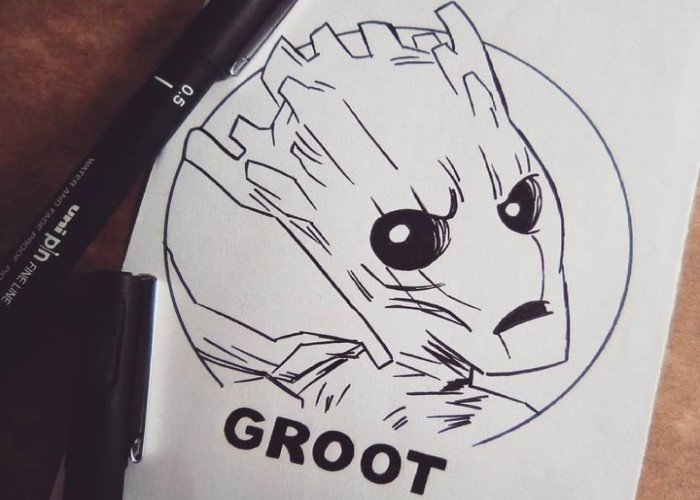 0.5
uni pin FINE LINE
WATER AND FADE PROOF
GROOT